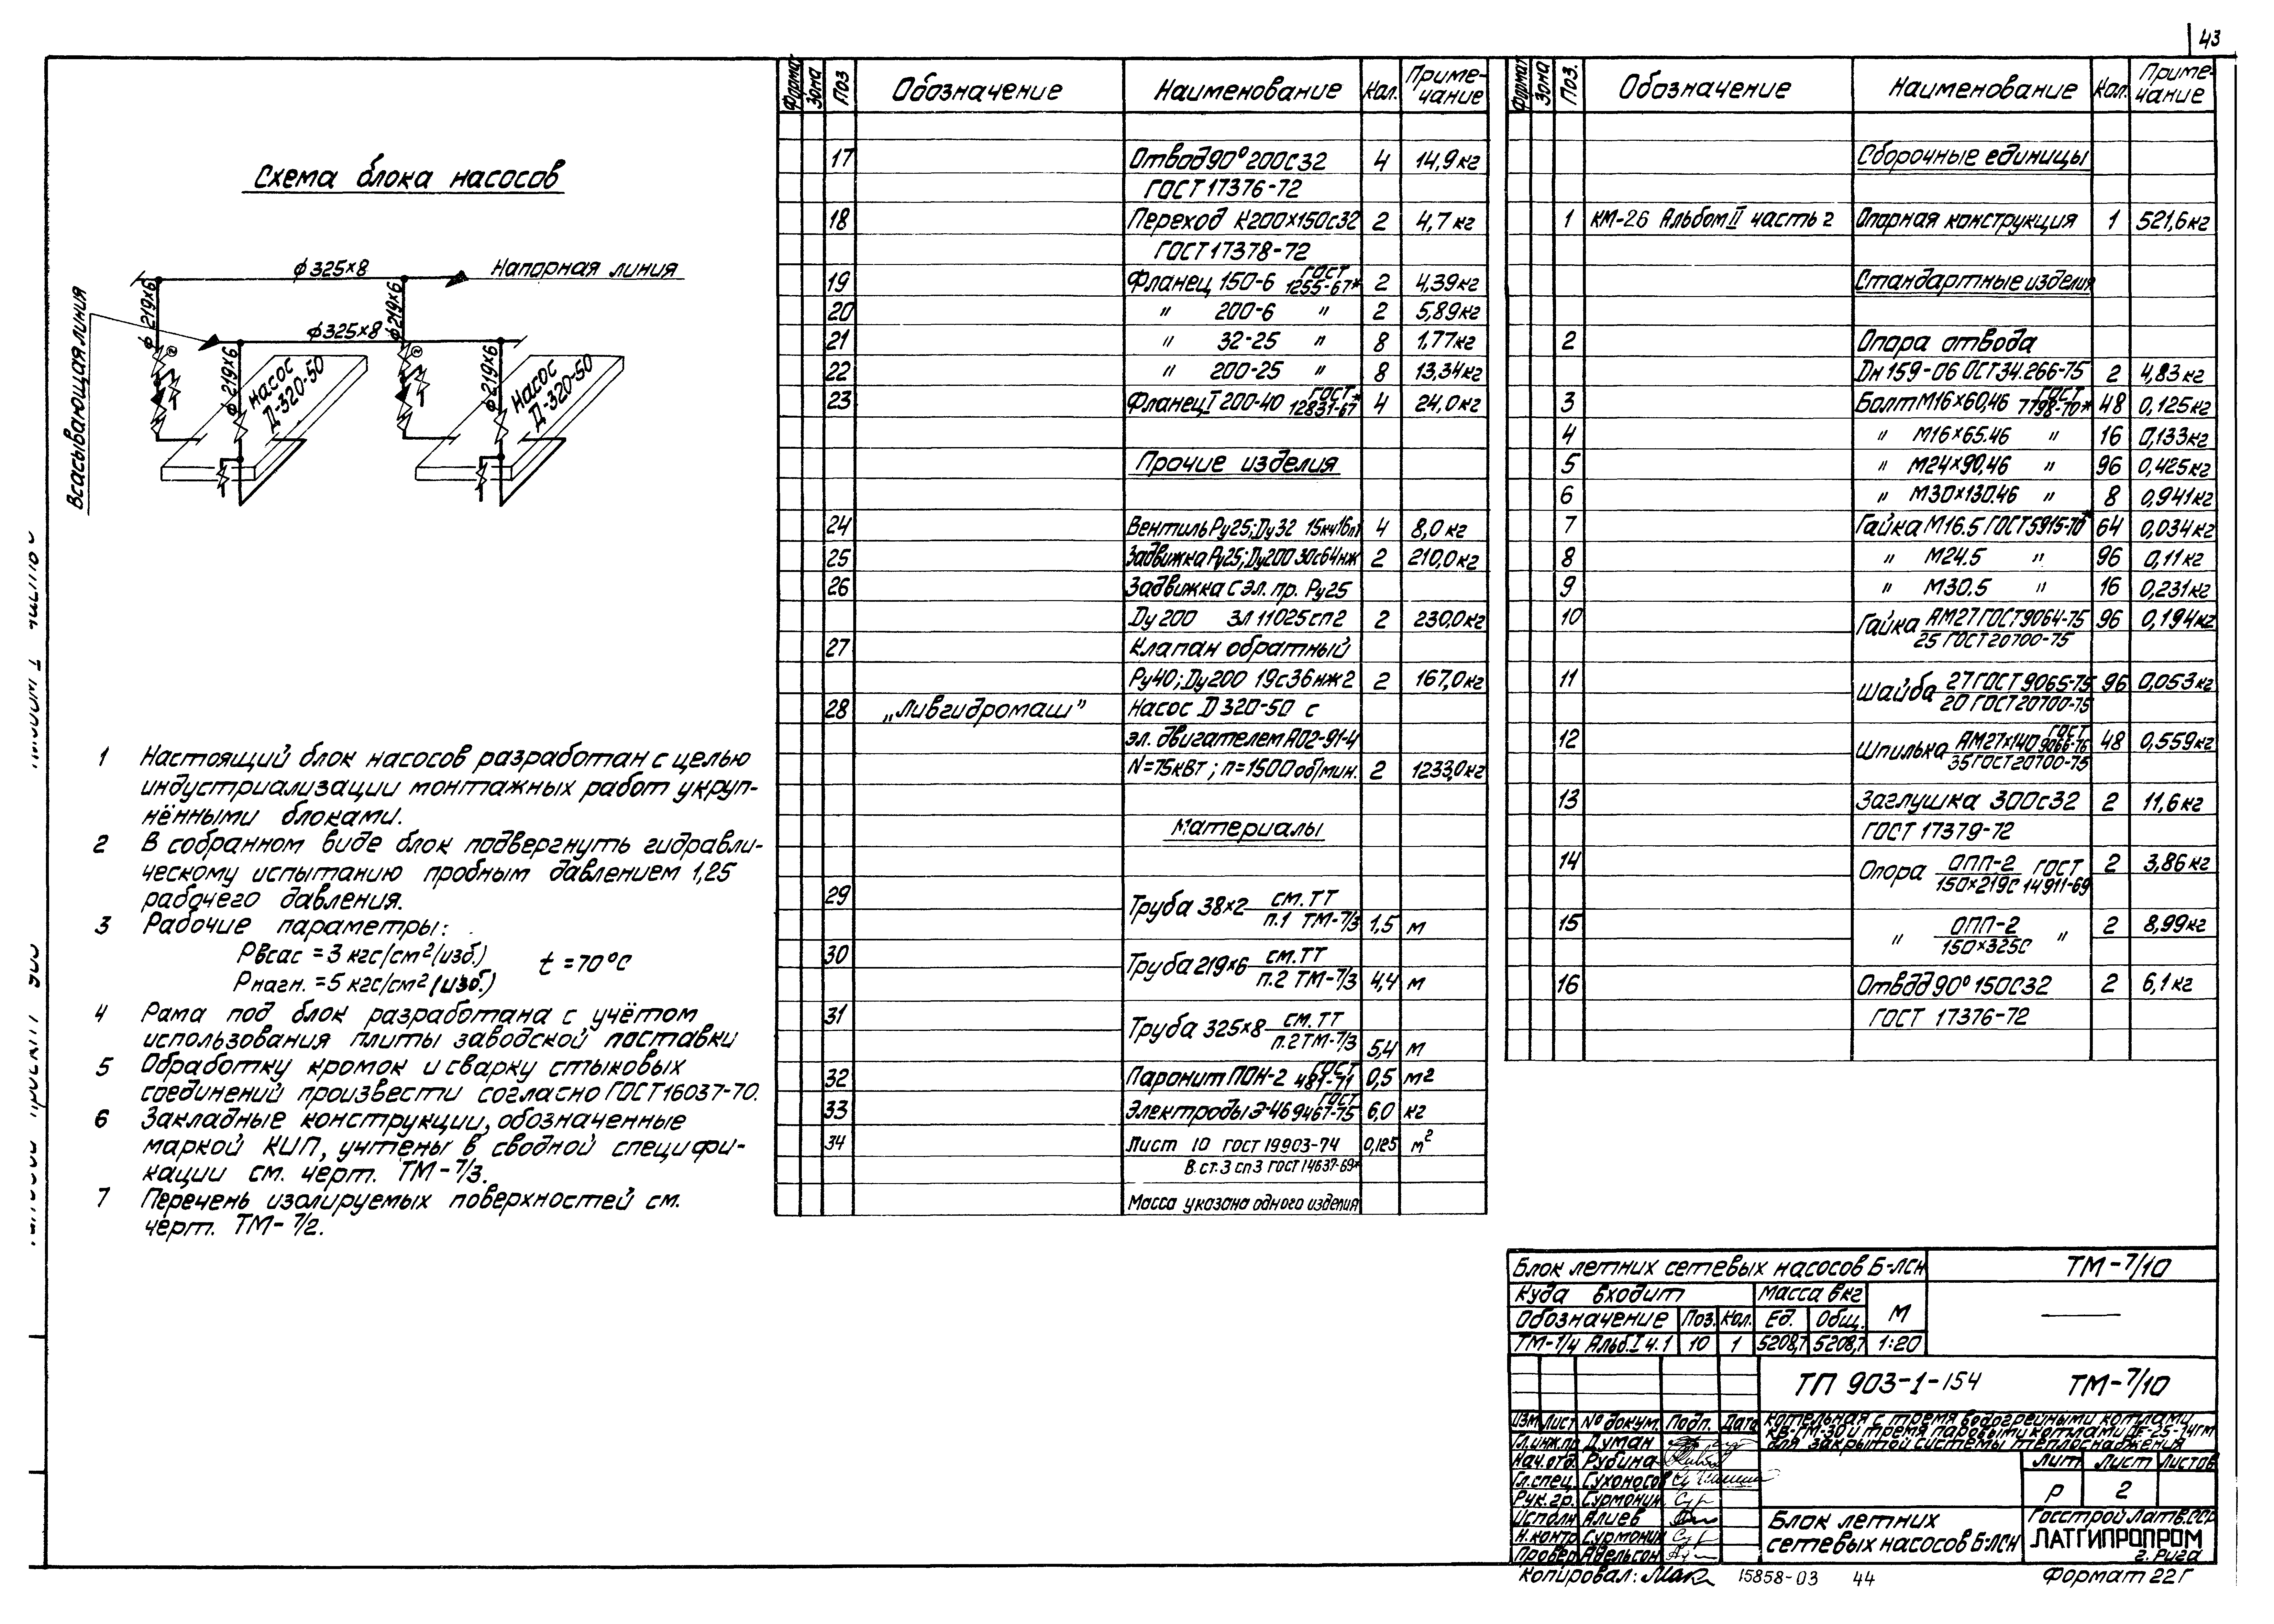 43
Схема блока насосов
ф325×8
Напорная линия
ф219×6
ф219×6
ф325×8
Всасывающая линия
ф219×6
ф219×6
насос
Д-320-50
насос
Д-320-50
1 Настоящий блок насосов разработан с целью
индустриализации монтажных работ укруп-
нёнными блоками.
2 В собранном виде блок подвергнуть гидравли-
ческому испытанию пробным давлением 1,25
рабочего давления.
3 Рабочие параметры:
Рвсас = 3 кгс/см² (изб.)
t = 70°С
Рнагн. = 5 кгс/см² (изб.)
4 Рама под блок разработана с учётом
использования плиты заводской поставки
5 Обработку кромок и сварку стыковых
соединений произвести согласно ГОСТ 16037-70.
6 Закладные конструкции, обозначенные
маркой КИП, учтены в сводной специфи-
кации см. черт. ТМ-7/3.
7 Перечень изолируемых поверхностей см.
черт. ТМ-7/2.
Формат Зона Поз Обозначение Наименование Кол. Приме-
чание
17 Отвод 90° 200С32 4 14,9кг
ГОСТ 17376-72
18 Переход К200×150с32 2 4,7кг
ГОСТ 17378-72
19 Фланец 150-6 ГОСТ 1255-67* 2 4,39кг
20 " 200-6 " 2 5,89кг
21 " 32-25 " 8 1,77кг
22 " 200-25 " 8 13,34кг
23 Фланец I 200-40 ГОСТ 12831-67* 4 24,0кг
Прочие изделия
24 Вентиль Ру25; Ду32 15кч16п1 4 8,0кг
25 Задвижка Ру25; Ду200 30с64нж 2 210,0кг
26 Задвижка с эл. пр. Ру25
Ду 200 3л 11025сп2 2 230,0кг
27 Клапан обратный
Ру40; Ду200 19с36нж2 2 167,0кг
28 „Ливгидромаш" Насос Д320-50 с
эл. двигателем А02-91-4
N=75кВт; n=1500 об/мин. 2 1233,0кг
Материалы
29 Труба 38×2 см. ТТ
п.1 ТМ-7/3 1,5 м
30 Труба 219×6 см. ТТ
п.2 ТМ-7/3 4,4 м
31 Труба 325×8 см. ТТ
п.2 ТМ-7/3 5,4 м
32 Паронит ПОН-2 ГОСТ 481-71 0,5 м2
33 Электроды Э-46 ГОСТ 9467-75 6,0 кг
34 Лист 10 ГОСТ 19903-74 0,125 м²
В. ст. 3 сп3 ГОСТ 14637-69*
Масса указана одного изделия
Формат Зона Поз. Обозначение Наименование Кол. Приме-
чание
Сборочные единицы
1 КМ-26 Альбом II часть 2 Опорная конструкция 1 521,6кг
Стандартные изделия
2 Опора отвода
Dн 159-06 ОСТ 34.266-75 2 4,83кг
3 Болт М16×60,46 ГОСТ 7798-70* 48 0,125кг
4 " М16×65.46 " 16 0,133кг
5 " М24×90,46 " 96 0,425кг
6 " М30×130.46 " 8 0,941кг
7 Гайка М16.5 ГОСТ 5915-70* 64 0,034кг
8 " М24.5 " 96 0,11кг
9 " М30.5 " 16 0,231кг
10 Гайка АМ27 ГОСТ 9064-75 96 0,194кг
25 ГОСТ 20700-75
11 Шайба 27 ГОСТ 9065-75 96 0,053кг
20 ГОСТ 20700-75
12 Шпилька АМ27×140 ГОСТ 9066-76 48 0,559кг
35 ГОСТ 20700-75
13 Заглушка 300с32 2 11,6кг
ГОСТ 17379-72
14 Опора ОПП-2 ГОСТ 2 3,86кг
150×219с 14911-69
15 " ОПП-2 " 2 8,99кг
150×325с
16 Отвод 90° 150С32 2 6,1кг
ГОСТ 17376-72
Блок летних сетевых насосов Б-ЛСН ТМ-7/10
Куда входит Масса в кг М
Обозначение Поз. Кол. Ед. Общ.
ТМ-1/4 Альб. I ч.1 10 1 5208,7 5208,7 1:20
ТП 903-1-154 ТМ-7/10
Изм Лист № докум. Подп. Дата
Котельная с тремя водогрейными котлами
КВ-ГМ-30 и тремя паровыми котлами ДЕ-25-14гм
для закрытой системы теплоснабжения
Гл.инж.пр Думан
Нач. отд. Рубина
Гл.спец. Сухоносов
Рук. гр. Сурмонин
Исполн Алиев
Н.контр Сурмонин
Провер Адельсон
Лит Лист Листов
Р 2
Блок летних
сетевых насосов Б-ЛСН
Госстрой Латв.ССР
ЛАТГИПРОПРОМ
г. Рига
Копировал: 15858-03 44 Формат 22Г